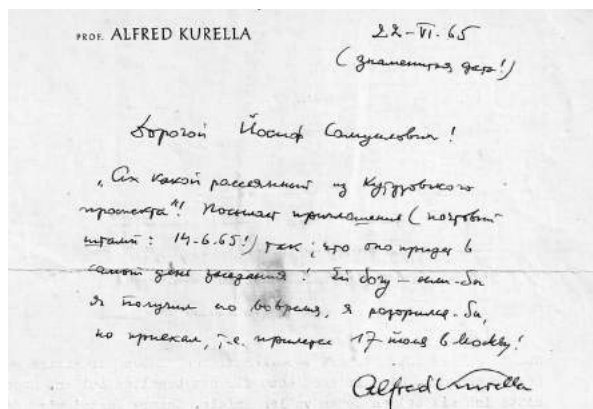 PROF. ALFRED KURELLA
22-VI.65
(знаменитая дата!)
Дорогой Йосиф Самуилович!
„Ах какой рассеянный из Кутузовского
проспекта"! Посылает приглашения (почтовый
штамп: 14-6.65!) так, что оно придет в
самый день заседания! Ей богу – если-бы
я получил его вовремя, я разорился-бы,
но приехал, т.е. прилетел 17 июня в Москву!
Alfred Kurella